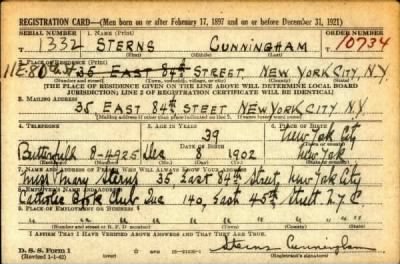 REGISTRATION CARD—(Men born on or after February 17, 1897 and on or before December 31, 1921)
SERIAL NUMBER 1. NAME (Print) ORDER NUMBER
T 1332 STERNS CUNNINGHAM 10734
(First) (Middle) (Last)
2. PLACE OF RESIDENCE (Print)
11 E 80th St 35 EAST 84th STREET, NEW YORK CITY, N.Y.
(Number and street) (Town, township, village, or city) (County) (State)
[THE PLACE OF RESIDENCE GIVEN ON THE LINE ABOVE WILL DETERMINE LOCAL BOARD
JURISDICTION; LINE 2 OF REGISTRATION CERTIFICATE WILL BE IDENTICAL]
3. MAILING ADDRESS
35 EAST 84th STEET NEW YORK CITY
[Mailing address if other than place indicated on line 2. If same insert word same]
4. TELEPHONE 5. AGE IN YEARS 6. PLACE OF BIRTH
39 New York City
DATE OF BIRTH
Butterfield 8-4925 Dec 8 1902 New York
7. NAME AND ADDRESS OF PERSON WHO WILL ALWAYS KNOW YOUR ADDRESS
Miss Mary Sterns 35 East 84th Street, New York City
8. EMPLOYER'S NAME AND ADDRESS
Catholic Book Club Inc 140, East 45th Street. N.Y.C
9. PLACE OF EMPLOYMENT OR BUSINESS
" " " " " " " "
(Number and street or R. F. D. number) (Town) (County) (State)
I AFFIRM THAT I HAVE VERIFIED ABOVE ANSWERS AND THAT THEY ARE TRUE.
D. S. S. Form 1
(Revised 1-1-42) (over)
Sterns Cunningham
(Registrant's signature)